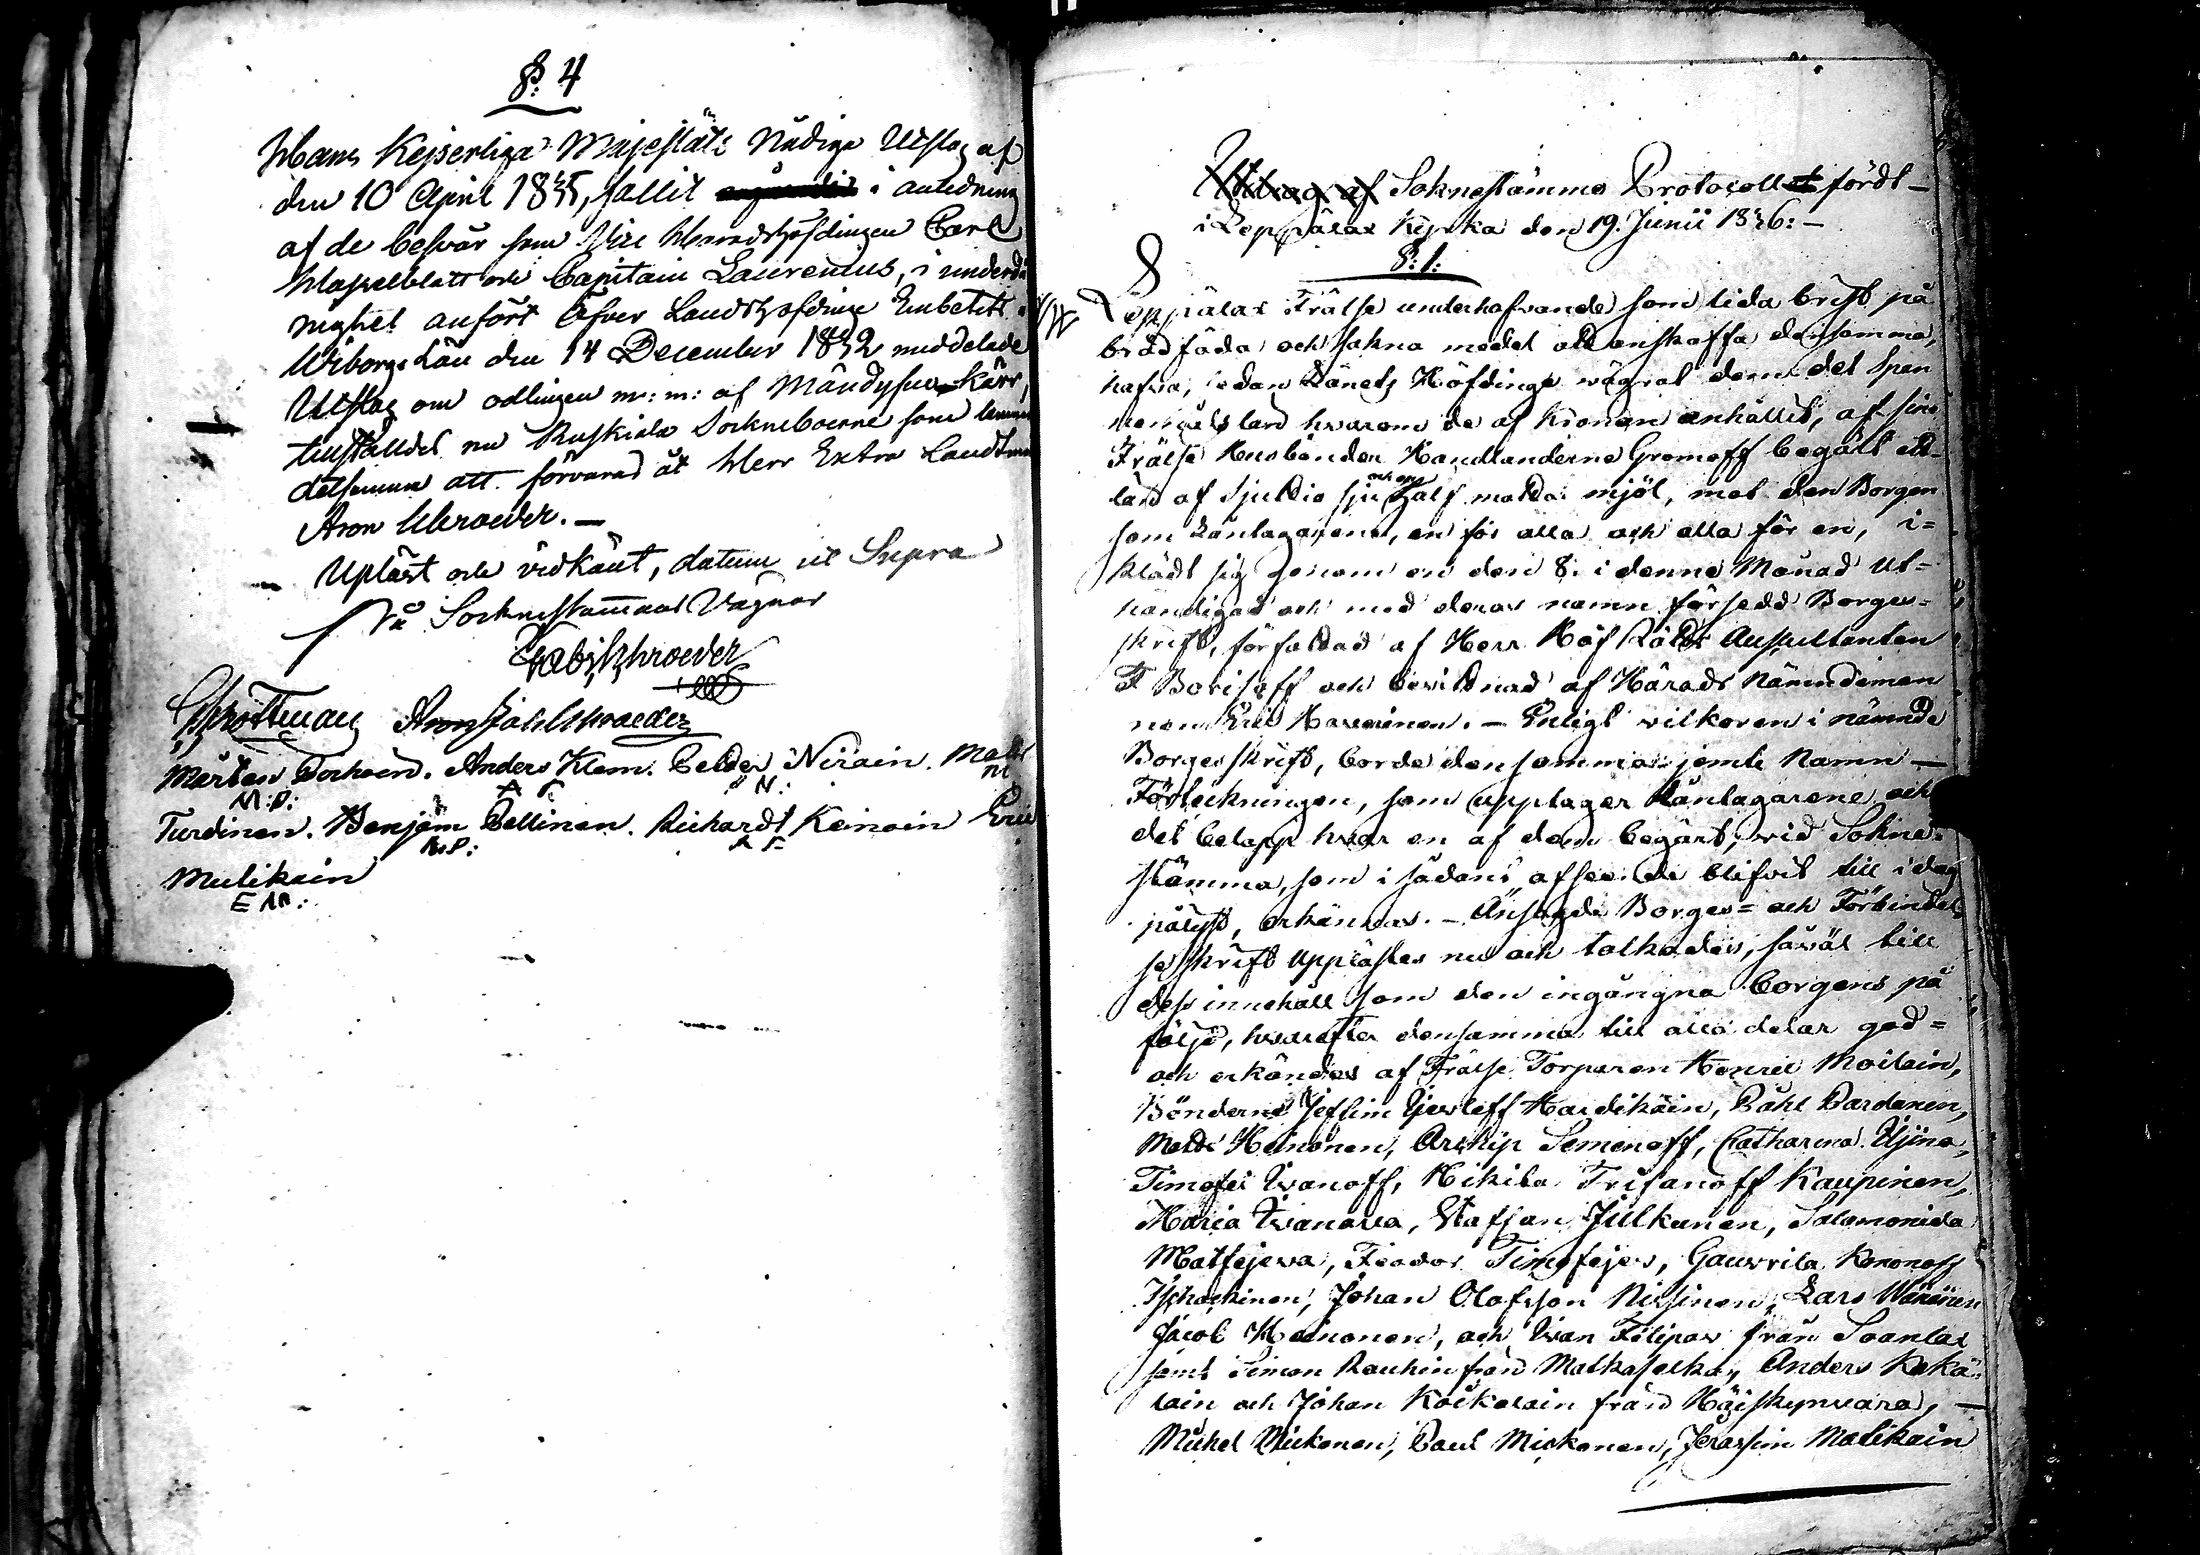 §: 4
Hans Kejserliga Majestäts Nådiga Utslag af
den 10 April 1835, fallit i anledning
af de besvär som Vice Häradshöfdingen Carl
Hasselblatt och Capitain Laurenius, i underdå
nighet anfört öfver Landshöfdinge Embetets i
Wiborgs Län den 14 December 1832 meddelade
Utslag om odlingen m: m: af Mändysuo-Kärr,
tillstäldes nu Ruskiala Sockneboerne som lemna
detsamma att förvaras åt Herr Extra Landtm
Aron Schroeder. —
Upläst och vidkänt, datum ut Supra
På Socknestämmans Vagnar
Gab: Schroeder
Aron Schroeder
Mårten Torhoin. Anders Klem. Petter Niräin. Matts
M: T: A K P N: M
Turdinen. Benjam Pellinen. Richardt Keinäin Eric
B: P: R K
Mulikain
E M:
Utdrag af Soknestämmo Protocollet fördt
i Leppälax Kyrka den 19. Junii 1836: —
§: 1:
Leppälax Frälse underhafvande som lida brist på
brödföda och sakna medel att anskaffa densamma,
hafva, sedan Länets Höfdinge vägrat dem det Span
nemåls lån hvarom de af Kronan anhållit, af sine
Frälse Husbönder Handlanderne Gromoff begärt ett
lån af Sjuttio sju och en half mattor mjöl, mot den Borgen
som Låntagarena, en för alla och alla för en, i=
klädt sig genom en den 8. i denne Månad ut=
händigad och med deras namn försedd Borges=
skrift, författad af Herr Hof Rätts Auscultanten
F Borisoff och bevittnad af Härads Nämndeman
nen Eric Havoinen. — Enligt vilkoren i nämnde
Borgesskrift, borde densamma jemte Namn —
Förteckningen, som upptager Låntagarene och
det belopp hvar en af dem begärt, vid Sokne=
stämma, som i sådant afseende blifvit till i dag
pålyst, erkännas. — Ansagde Borges= och Förbindel
se skrift upplästes nu och tolkades, såväl till
dess innehåll som den ingångna borgens på
följd, hvarefter densamma till alla delar god=
och erkändes af Frälse Torparen Henric Moilain,
Bönderne Jeffim Hardikain, Påhl Pardanen,
Matts Heinonen, Archip Semenoff, Catharina Iljina,
Timofei Ivanoff, Nikita Trifanoff Kaupinen,
Maria Ivanova, Staffan Julkunen, Salomonida
Matfejewa, Feodor Timofejew, Gawrila Kononoff
Ischackinen, Johan Olofsson Nissinen, Lars Wänänen
Jacob Heinonen, och Ivan Filipow från Soanlax
samt Simon Rauhin från Matkaselka, Anders Kokä
lain och Johan Koikalain från Höiskynvara, —
Michel Mickonen, Paul Mickonen, Jerassim Malikain